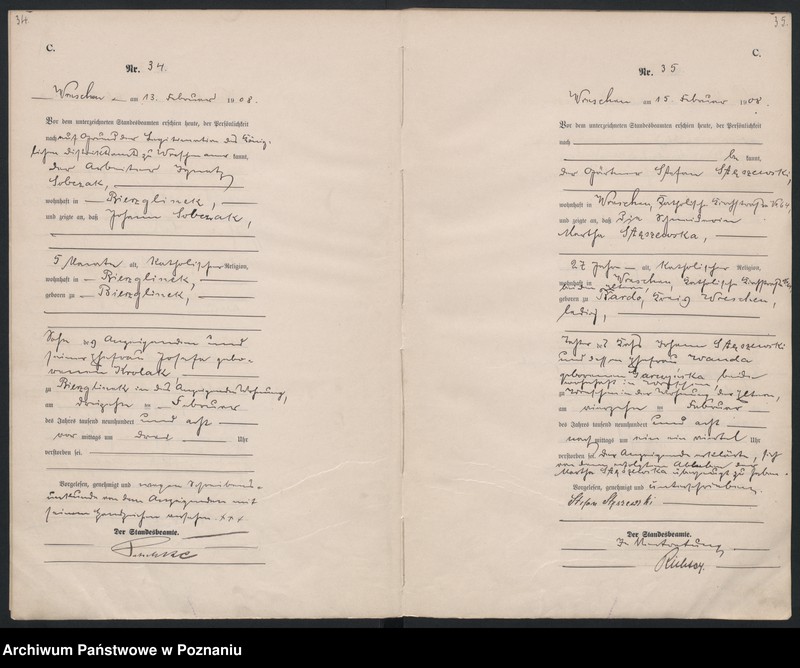 34
C.
Nr. 34.
Wreschen am 13. Februar 1908.
Vor dem unterzeichneten Standesbeamten erschien heute, der Persönlichkeit
nach auf Grund der Legitimation des König-
lichen Distriktsamts zu Wreschen kannt,
der Arbeiter Ignatz
Sobczak,
wohnhaft in Bierzglinek,
und zeigte an, daß Johann Sobczak,
5 Monate alt, katholischer Religion,
wohnhaft in Bierzglinek,
geboren zu Bierzglinek,
Sohn des Anzeigenden und
seiner Ehefrau Josefa gebo-
renen Krolak
zu Bierzglinek in des Anzeigenden Wohnung,
am dreizehn ten Februar
des Jahres tausend neunhundert und acht
vor mittags um drei Uhr
verstorben sei.
Vorgelesen, genehmigt und wegen Schreibens-
unkunde von dem Anzeigenden mit
seinem Handzeichen versehen. xxx
Der Standesbeamte.
35.
C.
Nr. 35
Wreschen am 15. Februar 1908.
Vor dem unterzeichneten Standesbeamten erschien heute, der Persönlichkeit
nach
be kannt,
der Gärtner Stefan Stęszewski,
wohnhaft in Wreschen, Katholische
und zeigte an, daß die Schneiderin
Martha Stęszewska,
27 Jahre alt, katholischer Religion,
wohnhaft in Wreschen, Katholische
bei den Eltern,
geboren zu Bardo, Kreis Wreschen,
ledig,
Tochter des Johann Stęszewski
und dessen Ehefrau Wanda
geborenen Garczyńska beide
wohnhaft in Wreschen
zu Wreschen in der Wohnung der Eltern,
am vierzehn ten Februar
des Jahres tausend neunhundert und acht
nach mittags um ein ein viertel Uhr
verstorben sei. Der Anzeigende erklärte, sich
von dem erfolgten Ableben der
Martha Stęszewska überzeugt zu haben.
Vorgelesen, genehmigt und unterschrieben.
Stefan Stęszewski
Der Standesbeamte.
In Vertretung
Archiwum Państwowe w Poznaniu